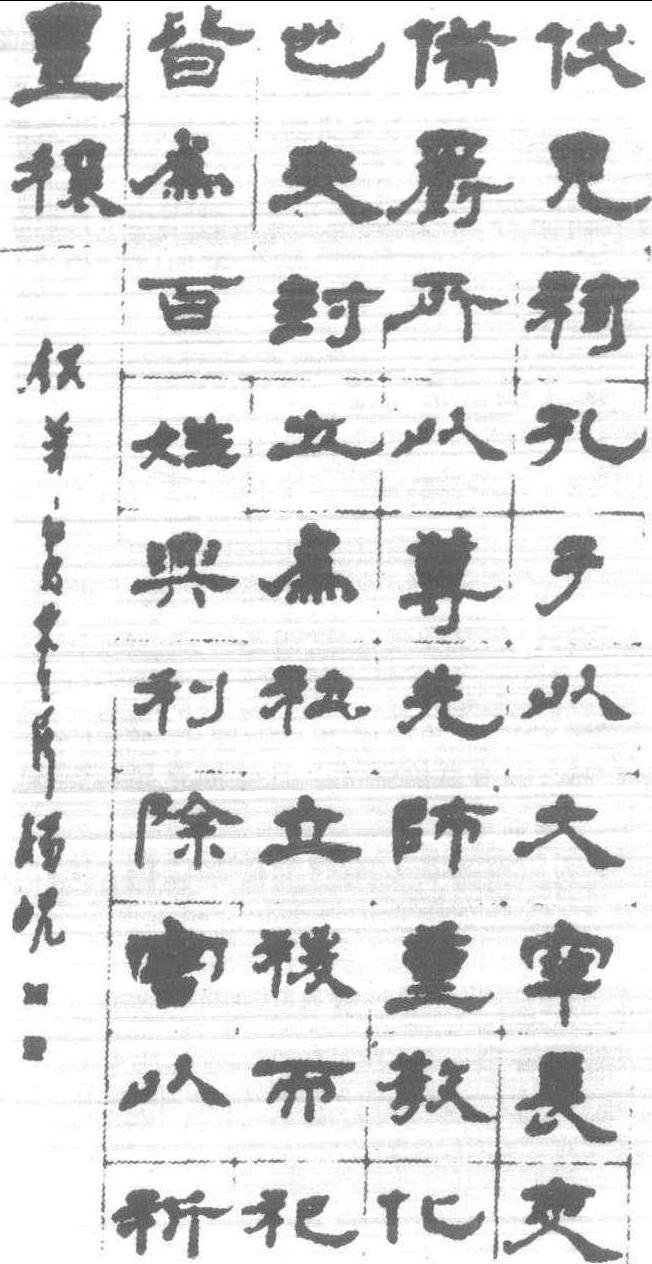 伏見祠孔子以大牢長吏
備爵所以尊先師重教化
也夫封土為社立稷而祀
皆為百姓興利除害以祈
豐穰